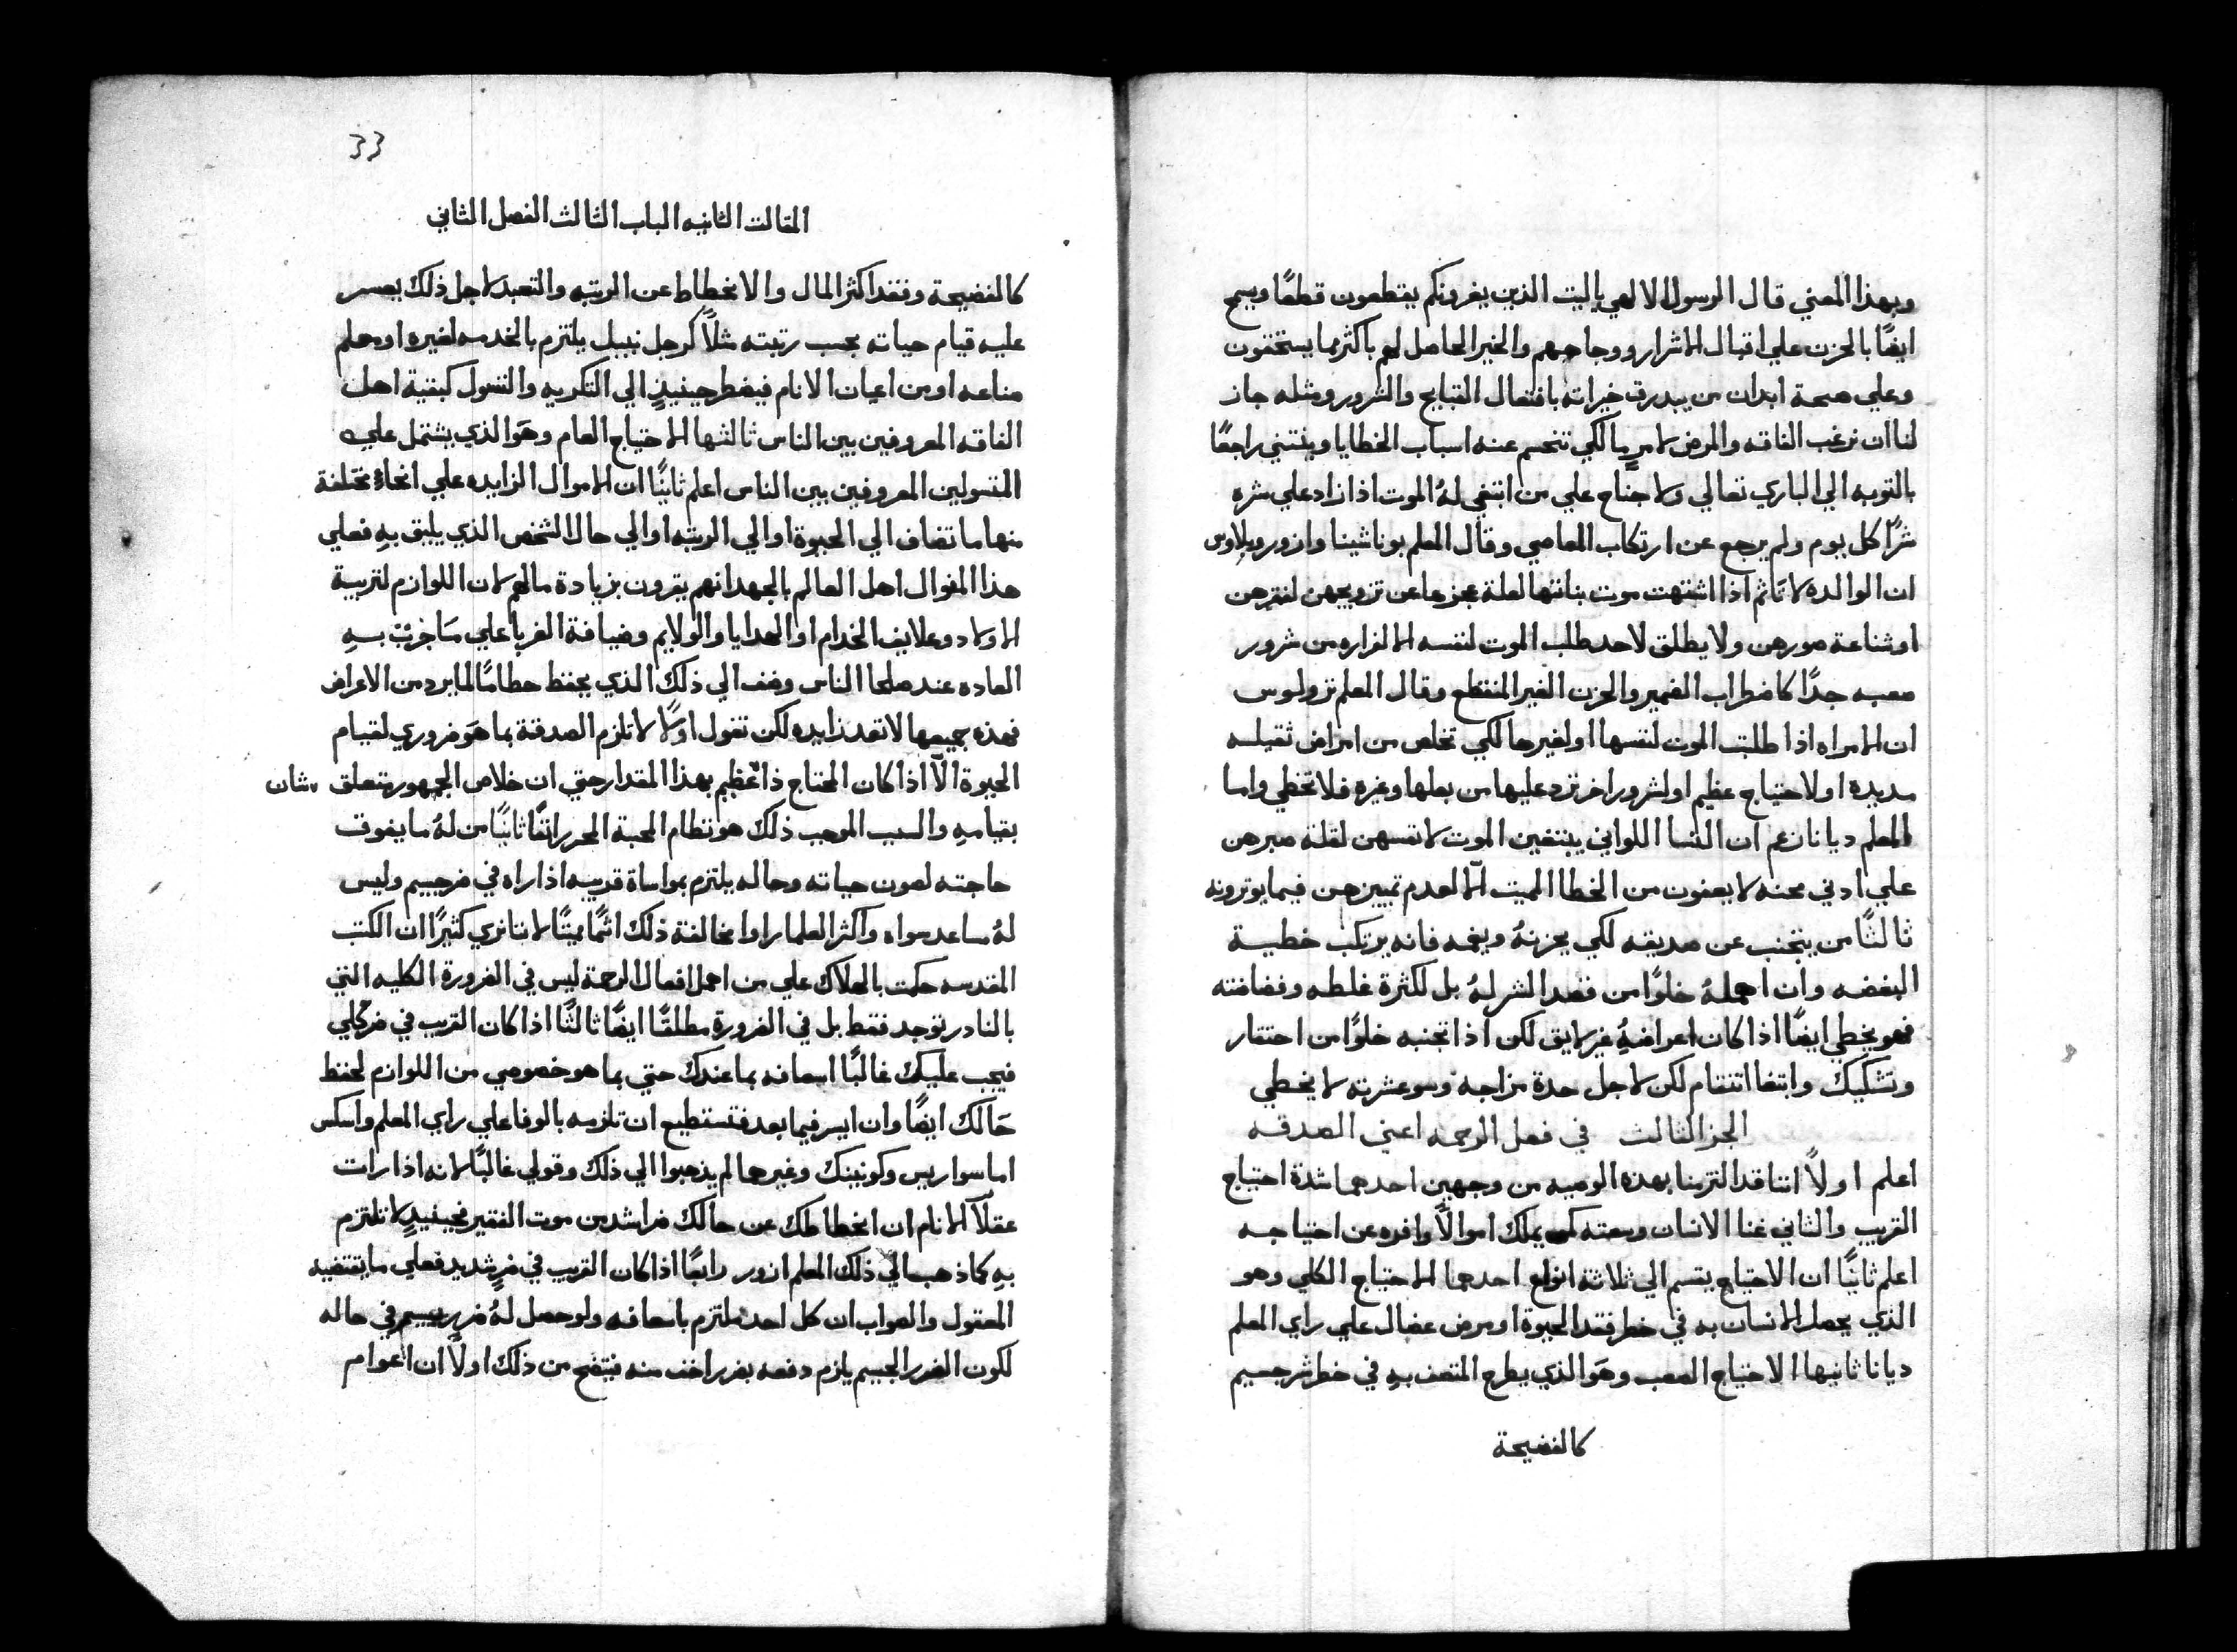 وبهذا المعني قال الرسول الالهي ياليت الذين يغرونكم يقطعون قطعًا ويسمح
ايضًا بالحزن علي اقبال الاشرار ووجاههم والخير الحاصل لهم باكثر مما يستحقون
وعلي صحة ابدان من يبدرق خيراته بافتعال القبايح والشرور ومثله جاز
لنا ان نرغب الفاقه والمرض لامرٍ ما لكي تنحسم عنه اسباب الخطايا وينثني راجعًا
بالتوبه الي الباري تعالي ولا جناح علي من ابتغي لهُ الموت اذا زاد علي شره
شرًا كل يوم ولم يرجع عن ارتكاب المعاصي وقال المعلم بوناشينا وازور وبلاوس
ان الوالده لا تاثم اذا اشتهت موت بناتها لعلة عجزها عن تزويجهن لفقرهن
او شناعة صورهن ولا يطلق لاحد طلب الموت لنفسه الا لفراره من شرور
صعبه جدًا كاضطراب الضمير والحزن الغير المنقطع وقال المعلم تزولوس
ان الامراه اذا طلبت الموت لنفسها او لغيرها لكي تخلص من امراض ثقيله
مديده او لاحتياج عظيم او لشرور اخر ترد عليها من بعلها وغيره فلا تخطي واما
المعلم ديانا زعم ان النسا اللواتي يبتغين الموت لانفسهن لقلة صبرهن
علي ادني محنه لا يعفون من الخطا المميت الّا لعدم تمييزهن فيما يوترونه
ثالثًا من يتجنب عن صديقه لكي يحزنهُ ويغمه فانه يرتكب خطية
البغضه وان اهملهُ خلوًا من قصد الشر لهُ بل لكثرة غلظه وفضافته
فهو يخطي ايضًا اذا كان اعراضهُ غير لايق لكن اذا تجنبه خلوًا من احتقار
وتشكيك وابتغا انتقام لكن لاجل حدة مزاجه وسو عشرته لا يخطي
الجز الثالث في فعل الرحمه اعني الصدقه
اعلم اولاً اننا قد التزمنا بهذه الوصيه من وجهين احدهما شدة احتياج
القريب والثاني غنا الانسان وسعته كمن يملك اموالاً وافره عن احتياجه
اعلم ثانيًا ان الاحتياج يقسم الي ثلاثة انواع احدهما الاحتياج الكلي وهو
الذي يحصل الانسان به في خطر فقد الحيوة او مرض عضال علي راي المعلم
ديانا ثانيها الاحتياج الصعب وهَو الذي يطرح المتصف بهِ في خطر شر جسيم
كالفضيحة
33
المقالت الثانيه الباب الثالث الفصل الثاني
كالفضيحة وفقد اكثر المال والانخطاط عن الرتبه والتعبد لاجل ذلك يعسر
عليه قيام حياته بحسب رتبته مثلاً كرجل نبيل يلتزم بالخدمه لغيره او معلم
صناعه او من اعيان الانام فيضطر حينيذٍ الي التكديه والتسول كبقية اهل
الفاقه المعروفين بين الناس ثالثها الاحتياج العام وهَو الذي يشتمل عليه
المتسولين المعروفين بين الناس اعلم ثانيًا ان الاموال الزايده علي انحاءٍ مختلفة
منها ما تضاف الي الحيوة او الي الرتبه او الي حال الشخص الذي يليق بهِ فعلي
هذا المنوال اهل العالم بالجهد انهم يقرون بزيادة مالهم لان اللوازم لتربية
الاولاد وعلايف الخدام او الهدايا والولايم وضيافة الغربا علي مَا جرَتْ بهِ
العاده عند صلحا الناس وضف الي ذلك الذي يحفظ حطامًا لما يرد من الاعراض
فهذه جميعها لا تعد زايده لكن نقول اولاً لا تلزم الصدقة بما هَو ضروري لقيام
الحيوة الّا اذا كان المحتاج ذا عظيم بهذا المقدار حتي ان خلاص الجمهور يتعلق شان
بقيامهِ والسبب الموجب ذلك هو نظام المحبة المحرر انفًا ثانيًا من لهُ ما يفوق
حاجته لصون حياته وحاله يلتزم بمواساة قريبه اذا راه في ضر جسيم وليس
لهُ مساعد سواه واكثر العلما راوا مخالفة ذلك اثمًا مميتًا لاننا نري كثيرًا ان الكتب
المقدسه حكمت بالهلاك علي من اهمل افعال الرحمة ليس في الضرورة الكليه التي
بالنادر توجد فقط بل في الضرورة مطلقًا ايضًا ثالثًا اذا كان القريب في ضر كلي
فيجب عليك غالبًا اسعافه بما عندك حتي بما هو خصوصي من اللوازم لحفظ
حَالك ايضًا وان ايسر فيما بعد فتستطيع ان تلزمه بالوفا علي راي المعلم واسكس
اما سواريس وكونينك وغيرهما لم يذهبوا الي ذلك وقولي غالبًا لانه اذا رات
عقلآ الانام ان انخطاطك عن حالك ضر اشد من موت الفقير فحينيذٍ لا تلتزم
بهِ كما ذهب الي ذلك المعلم ازور رابعًا اذا كان القريب في ضرٍ شديد فعلي ما يقتضيه
المعقول والصواب ان كل احد ملتزم باسعافه ولو حصل لهُ ضرر يسير في حاله
لكون الضرر الجسيم يلزم دفعه بضرر اخف منه فيتضح من ذلك اولاً ان اعوام